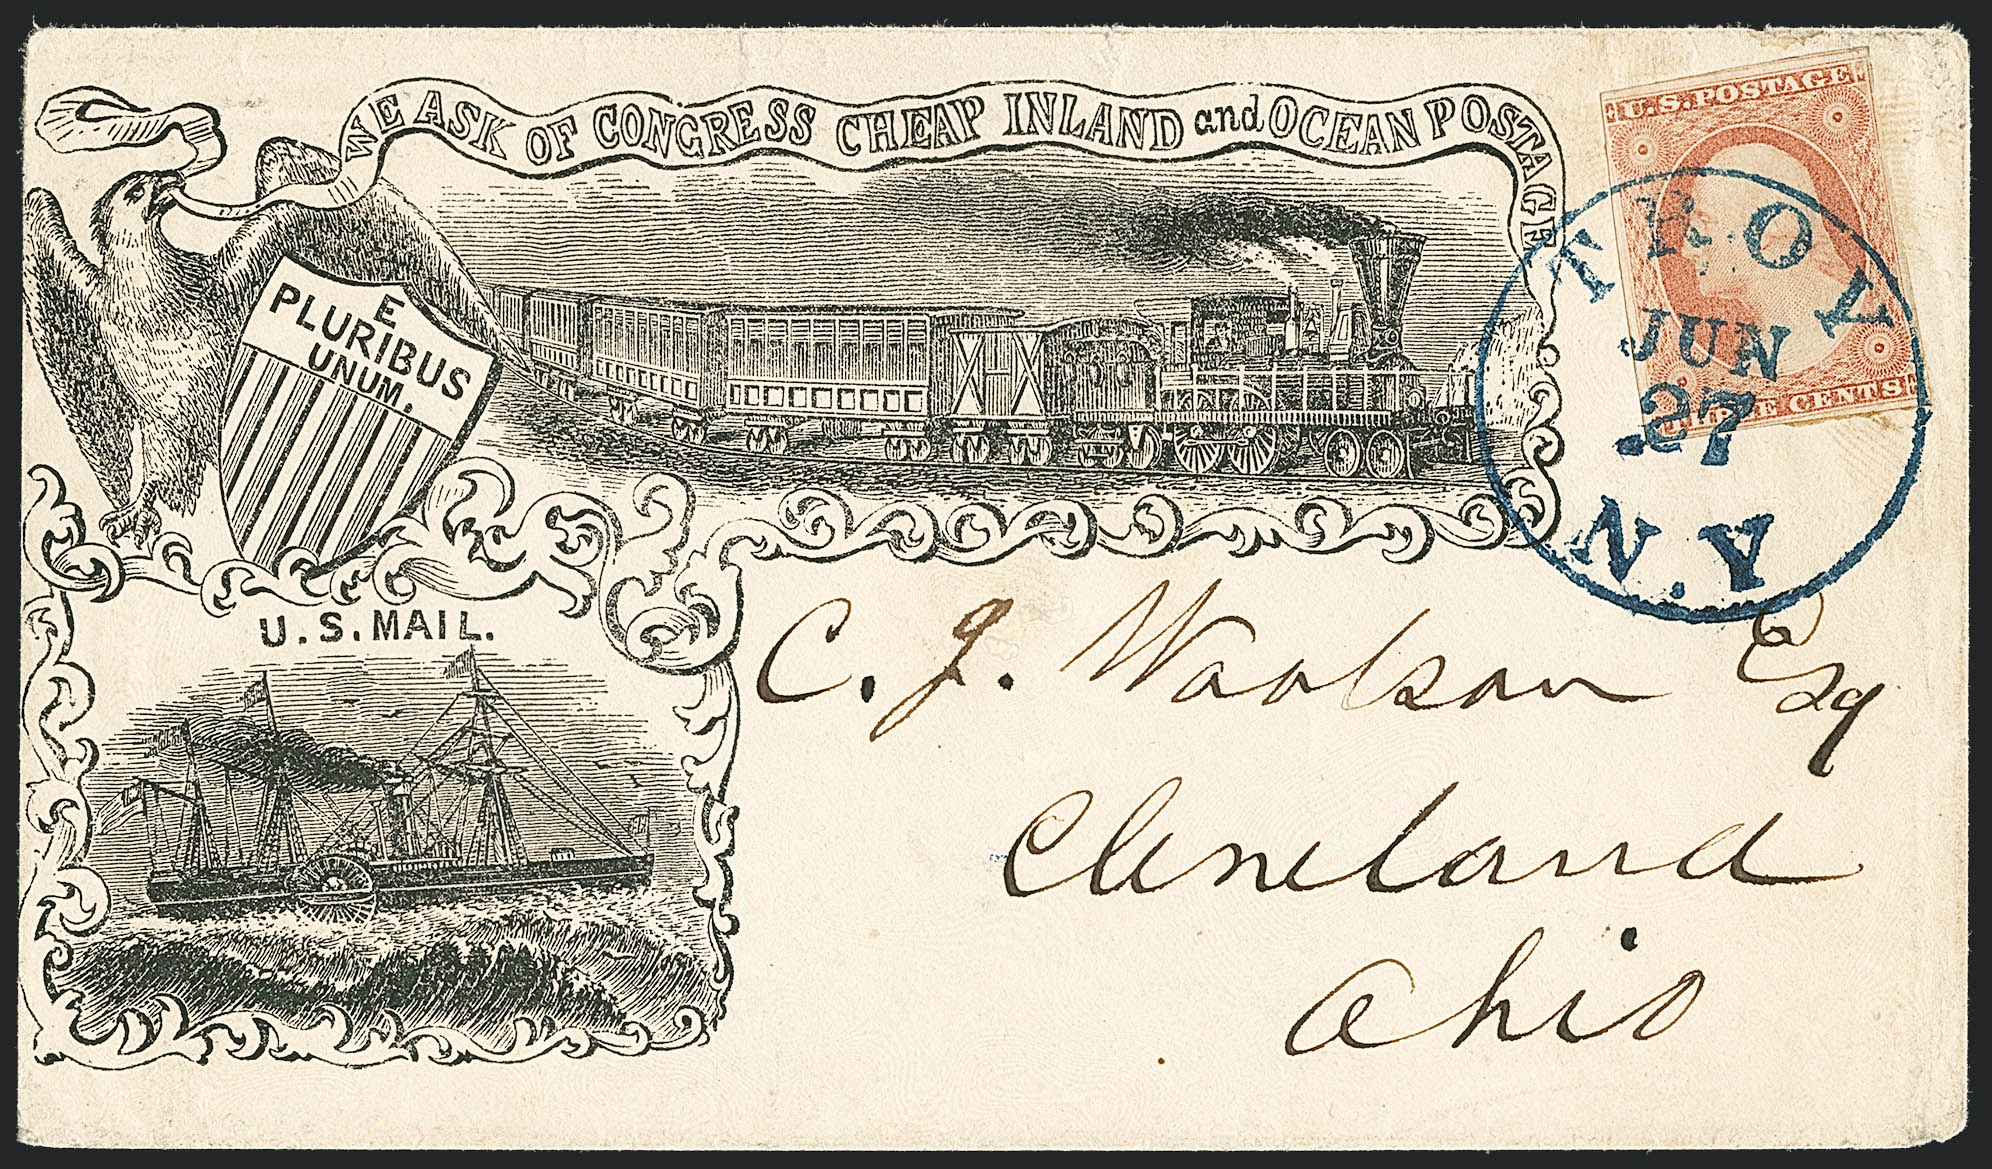 WE ASK OF CONGRESS CHEAP INLAND and OCEAN POSTAGE
U.S. POSTAGE
THREE CENTS
TROY
JUN
27
N.Y.
E
PLURIBUS
UNUM.
U.S. MAIL.
C. J. Woolson Esq
Cleveland
Ohio